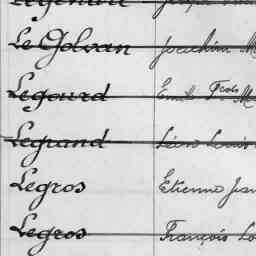 Le Golvan Joachim M
Legourd Emile Fcois M
Legrand Léon Louis
Legros Etienne Jean
Legros François Lo